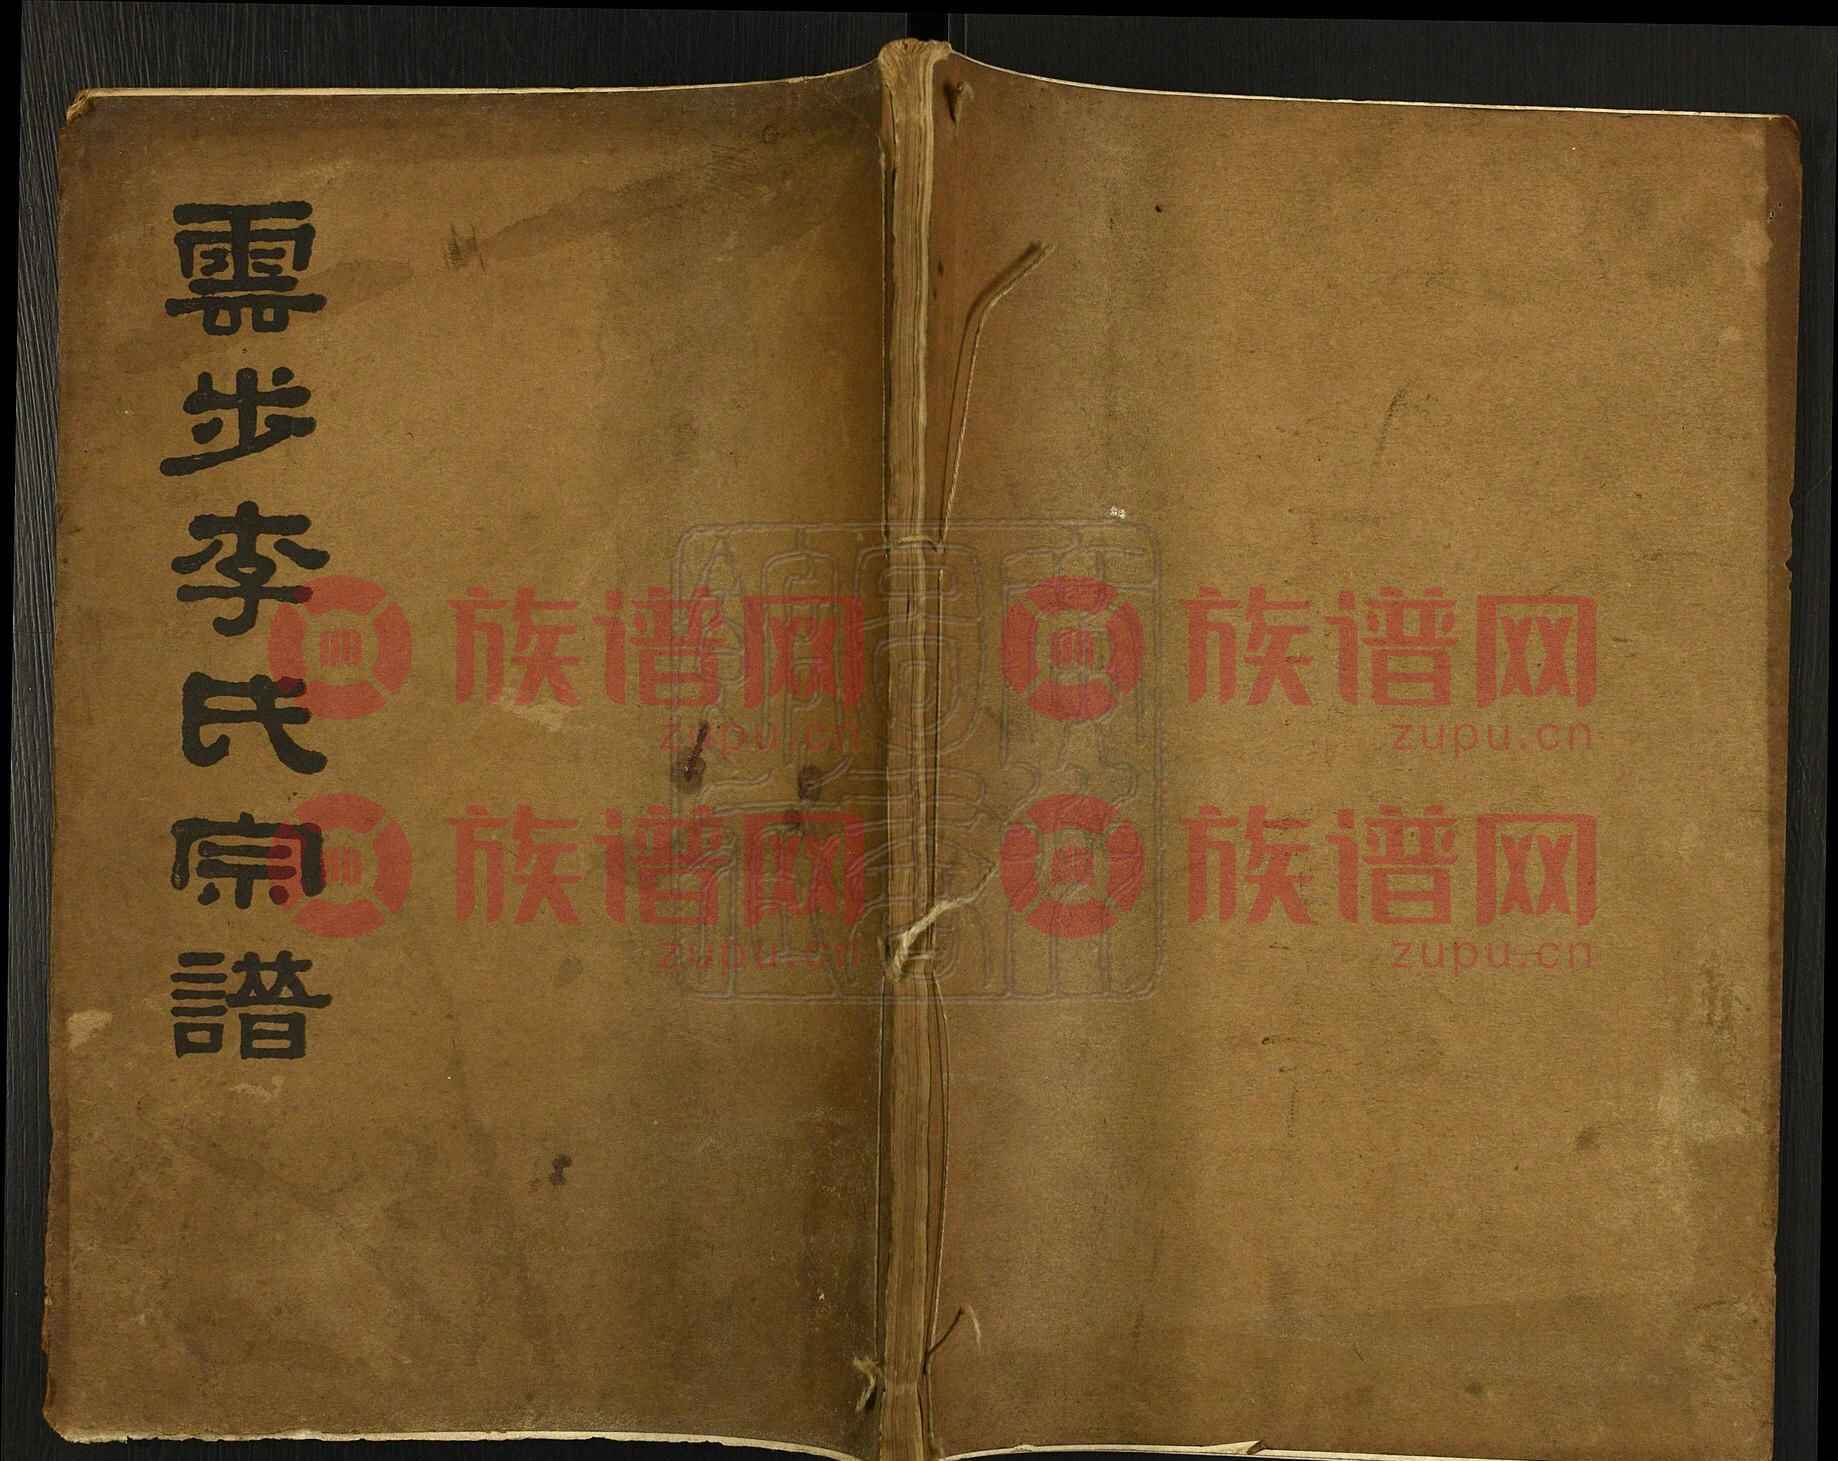 雲步李氏宗譜
族谱网 族谱网
zupu.cn zupu.cn
族谱网 族谱网
zupu.cn zupu.cn